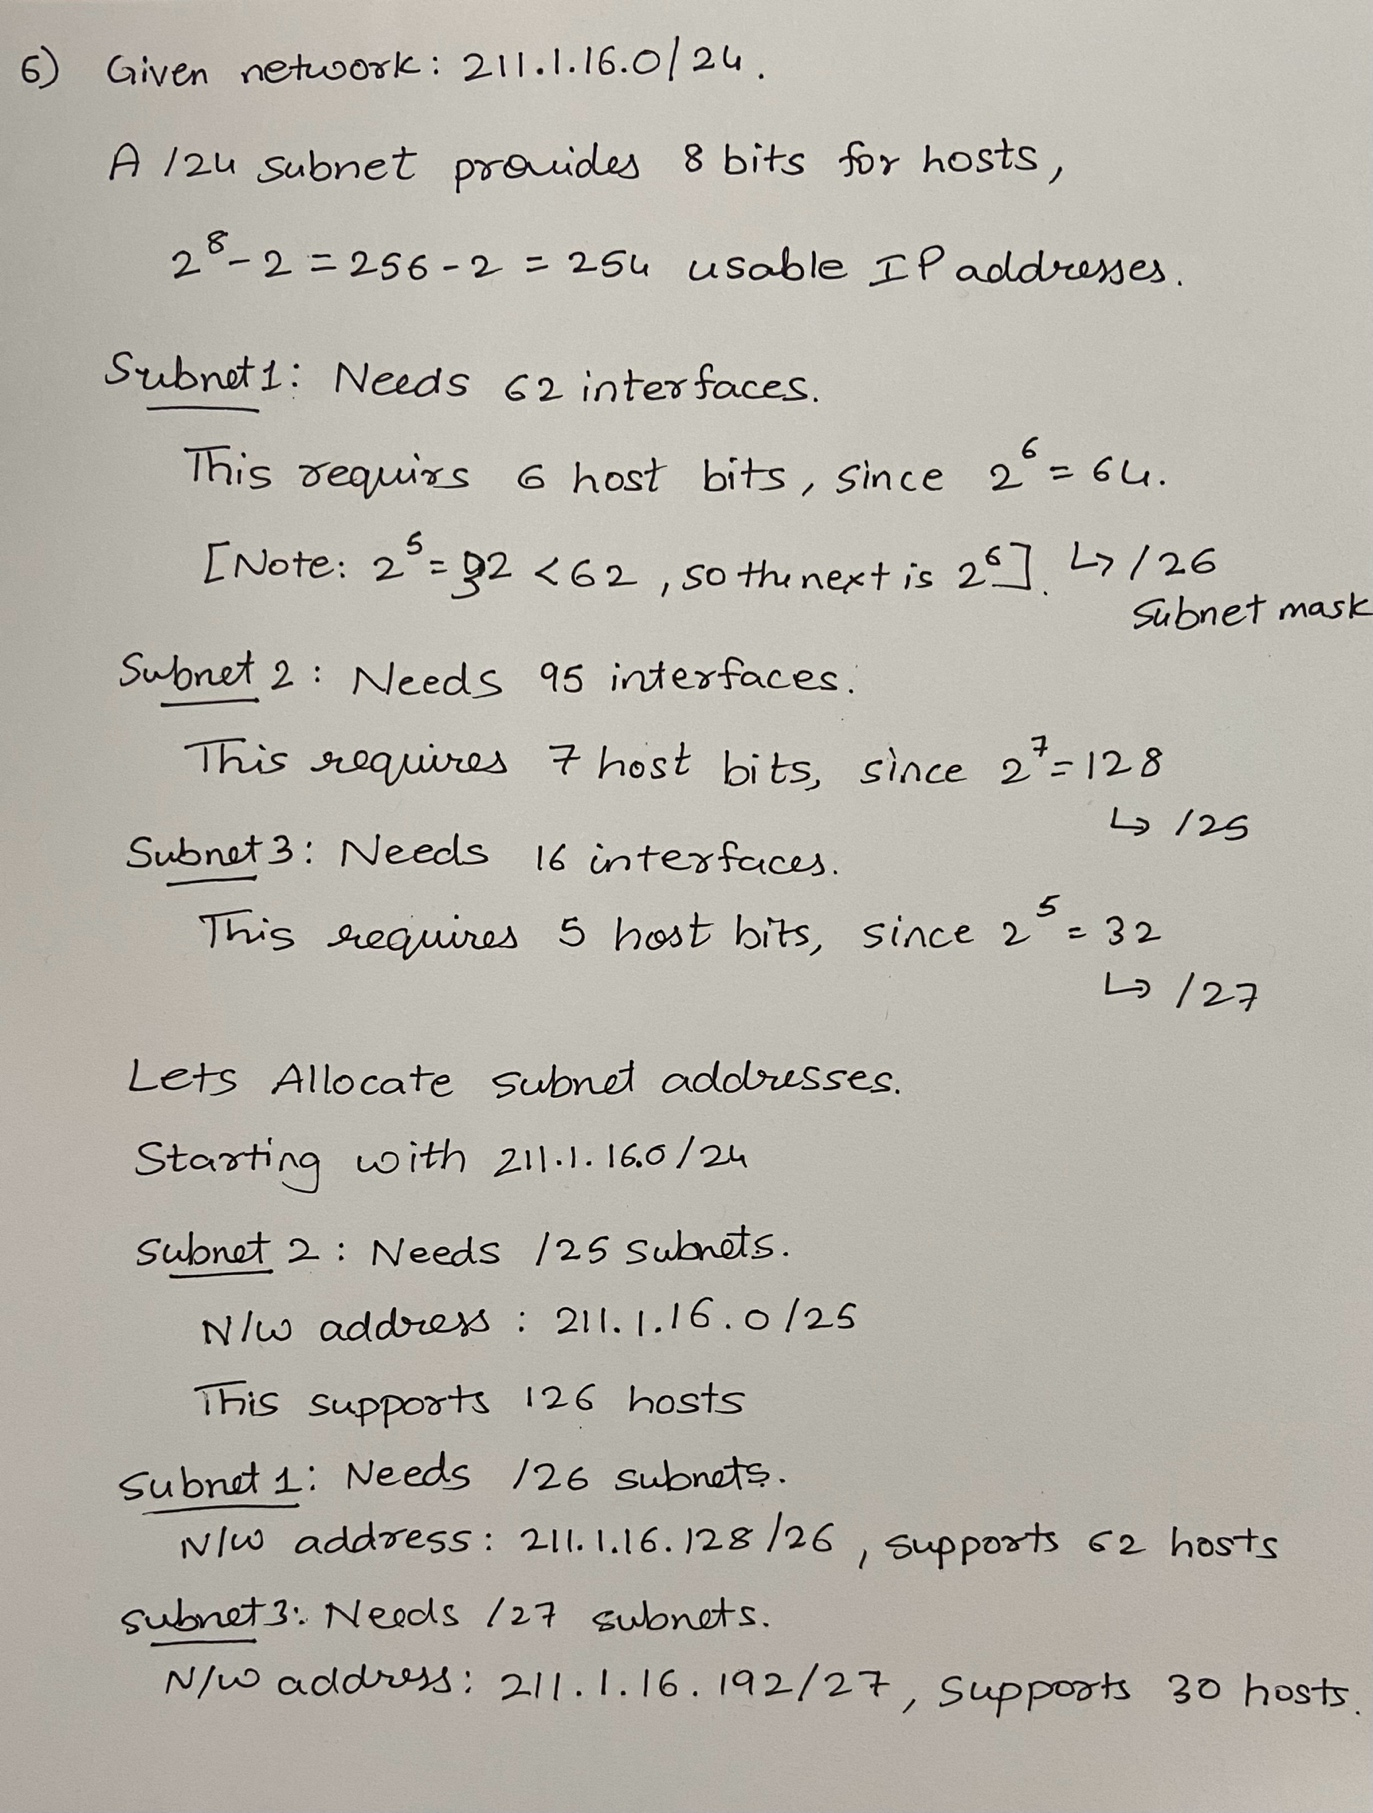 6) Given network: 211.1.16.0/24.
A /24 subnet provides 8 bits for hosts,
2⁸-2 = 256-2 = 254 usable IP addresses.
Subnet 1: Needs 62 interfaces.
This requirs 6 host bits, since 2⁶ = 64.
[Note: 2⁵ = 32 < 62, so the next is 2⁶]. ↳ /26
Subnet mask
Subnet 2: Needs 95 interfaces.
This requires 7 host bits, since 2⁷ = 128
↳ /25
Subnet 3: Needs 16 interfaces.
This requires 5 host bits, since 2⁵ = 32
↳ /27
Lets Allocate subnet addresses.
Starting with 211.1.16.0/24
Subnet 2: Needs /25 subnets.
N/w address: 211.1.16.0/25
This supports 126 hosts
Subnet 1: Needs /26 subnets.
N/w address: 211.1.16.128/26, supports 62 hosts
subnet 3: Needs /27 subnets.
N/w address: 211.1.16.192/27, supports 30 hosts.